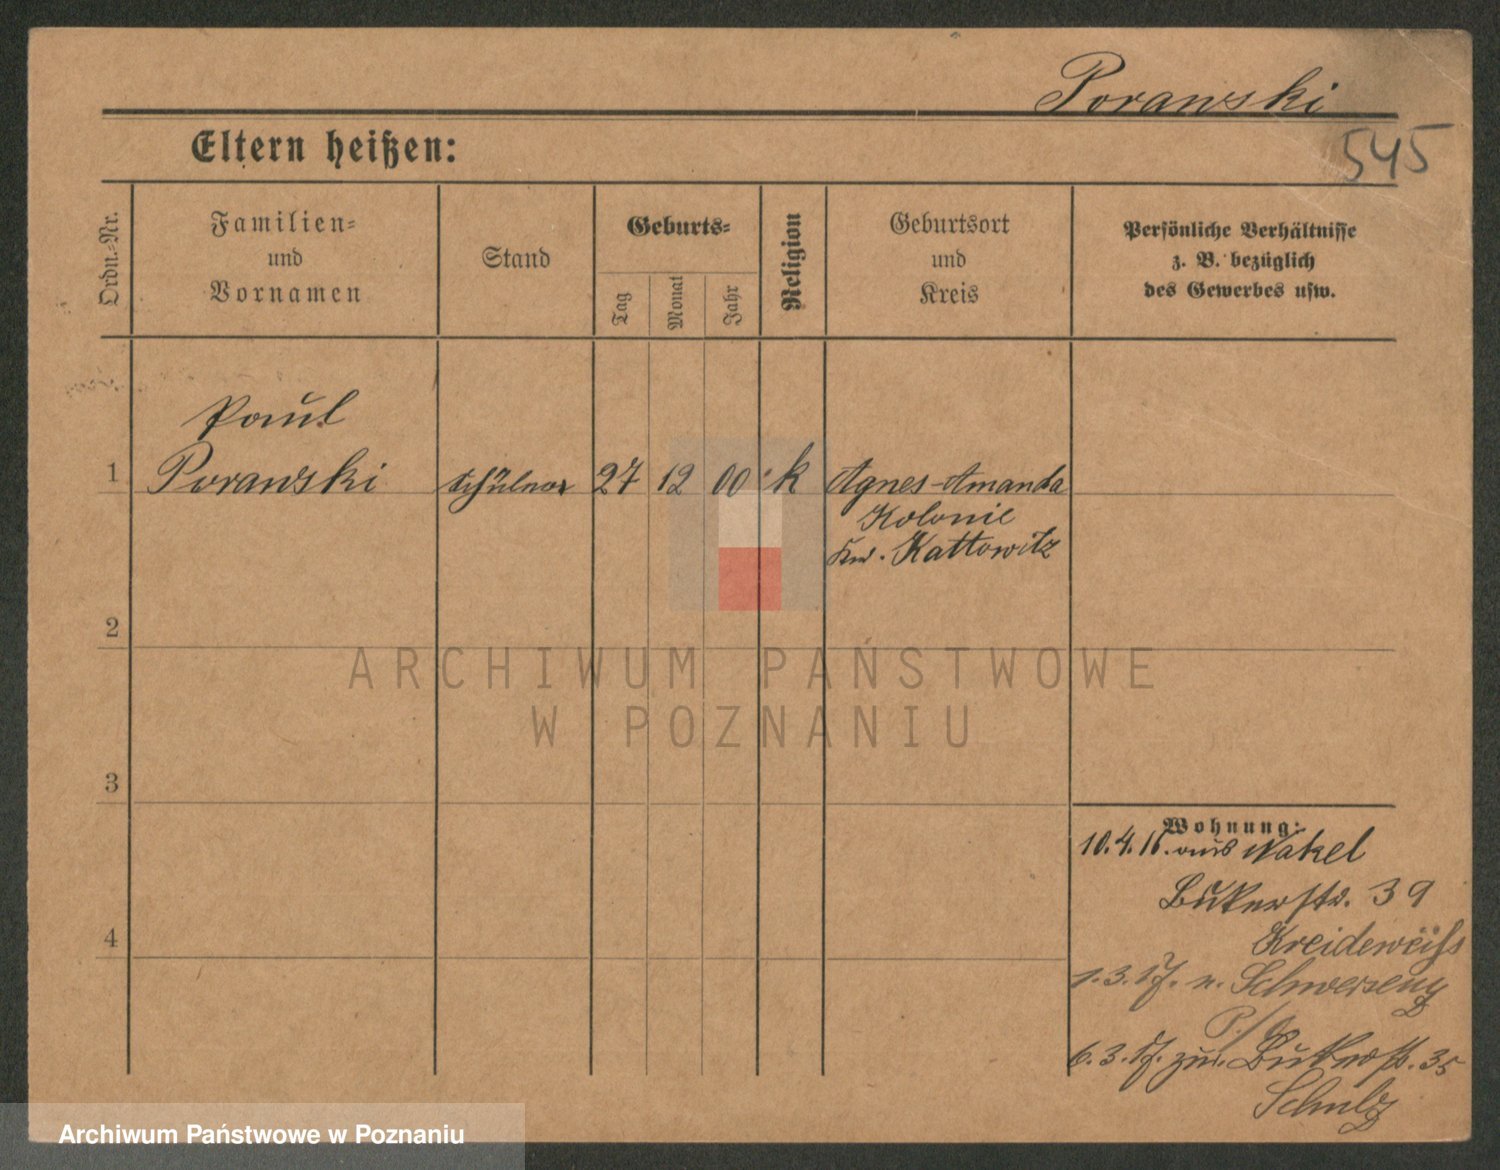 Porawski
545
Eltern heißen:
Ordn.-Nr.
Familien-
und
Vornamen
Stand
Geburts-
Tag
Monat
Jahr
Religion
Geburtsort
und
Kreis
Persönliche Verhältnisse
z. B. bezüglich
des Gewerbes usw.
Paul
1 Porawski Schüler 27 12 00 k Agnes-Amanda
Kolonie
Kr. Kattowitz
2
ARCHIWUM PAŃSTWOWE
W POZNANIU
3
Wohnung:
10.4.16. aus Nakel
Bukerstr. 39
4
Kreideweiss
1.3.17. n. Schwersenz
6.3.17. zur. Bukerstr. 35
Schulz
Archiwum Państwowe w Poznaniu